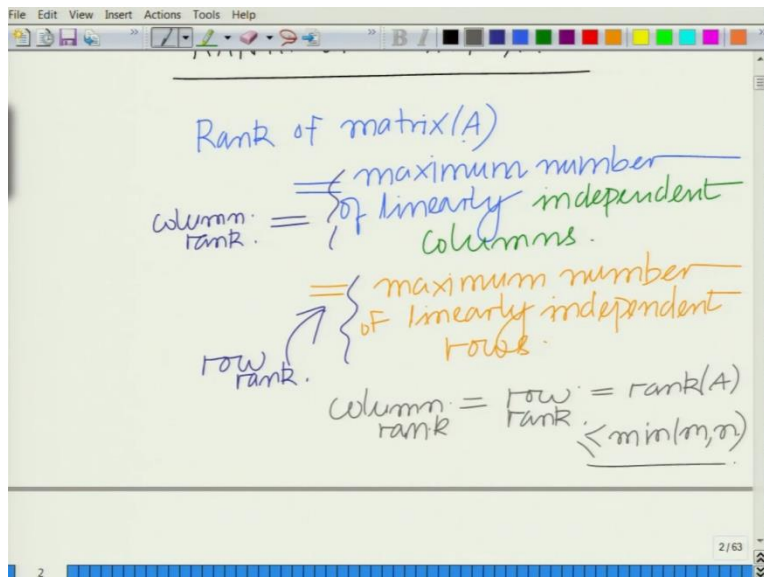 File Edit View Insert Actions Tools Help
B I
Rank of matrix(A)
= maximum number
of linearly independent
columns.
column rank. =
= maximum number
of linearly independent
rows.
row rank.
column rank = row rank. = rank(A)
≤ min(m,n)
2/63
2